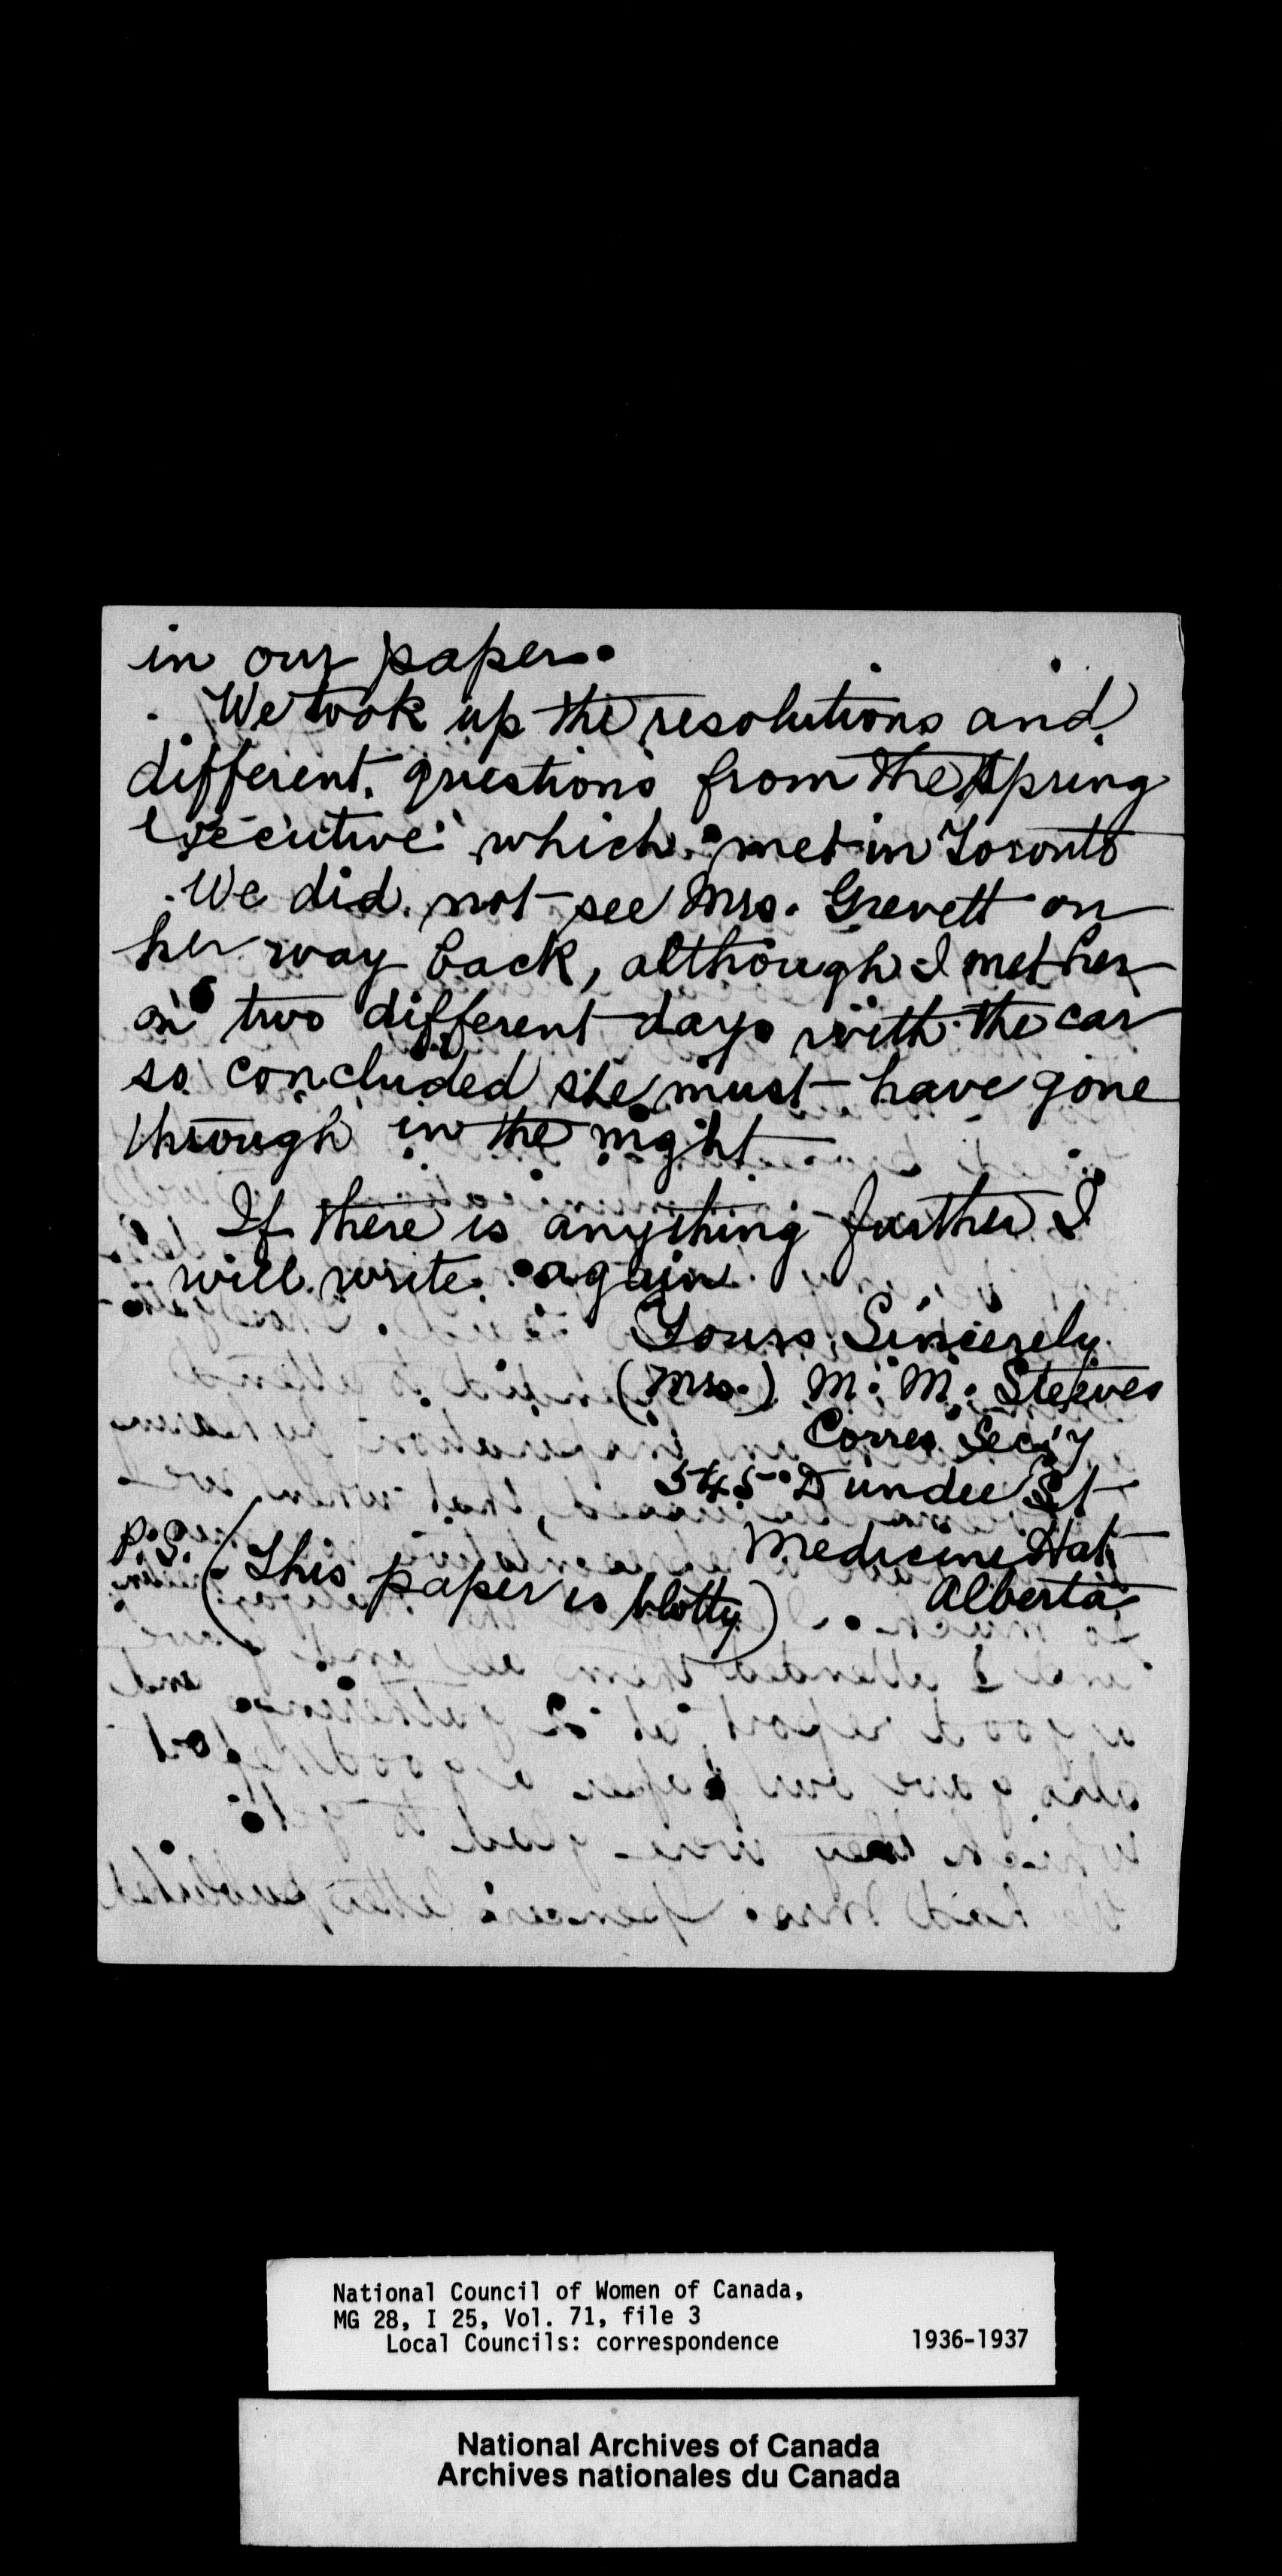 in our paper.
We took up the resolutions and
different questions from the Spring
Executive which met in Toronto
We did not see Mrs. Grevett on
her way back, although I met her
on two different days with the car
so concluded she must have gone
through in the night
If there is anything further I
will write again.
Yours Sincerely
(Mrs.) M. M. Steeves
Corres. Sec'y
545 Dundee St
Medicine Hat
Alberta
P.S. (This paper is blotty)
National Council of Women of Canada,
MG 28, I 25, Vol. 71, file 3
Local Councils: correspondence 1936-1937
National Archives of Canada
Archives nationales du Canada